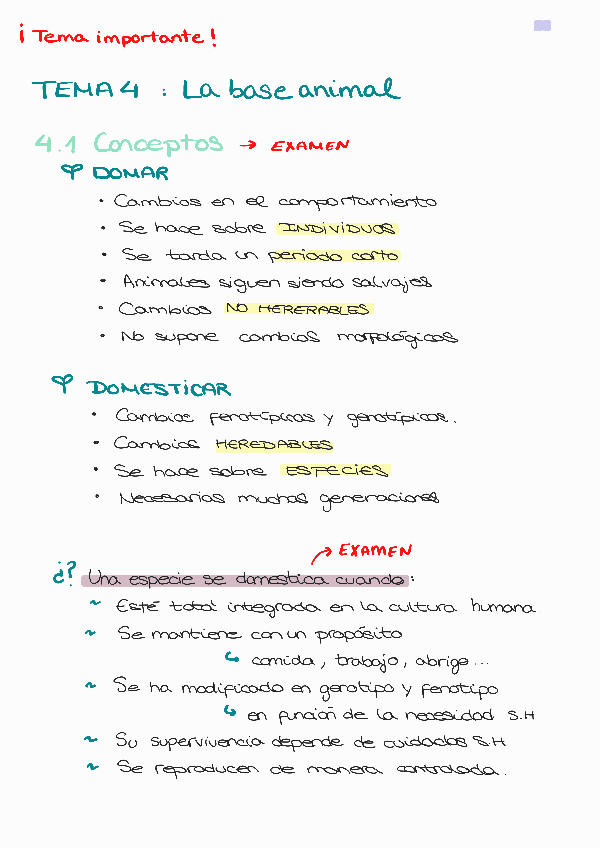 ¡Tema importante!
TEMA 4 : La base animal
4.1 Conceptos → EXAMEN
DOMAR
• Cambios en el comportamiento
• Se hace sobre INDIVIDUOS
• Se tarda un periodo corto
• Animales siguen siendo salvajes
• Cambios NO HERERABLES
• No supone cambios morfológicos
DOMESTICAR
• Cambios fenotípicos y genotípicos.
• Cambios HEREDABLES
• Se hace sobre ESPECIES
• Necesarias muchas generaciones
→ EXAMEN
¿? Una especie se domestica cuando:
~ Esté total integrada en la cultura humana
~ Se mantiene con un propósito
↳ comida, trabajo, abrigo...
~ Se ha modificado en genotipo y fenotipo
↳ en función de la necesidad S.H
~ Su supervivencia depende de cuidados S.H
~ Se reproducen de manera controlada.